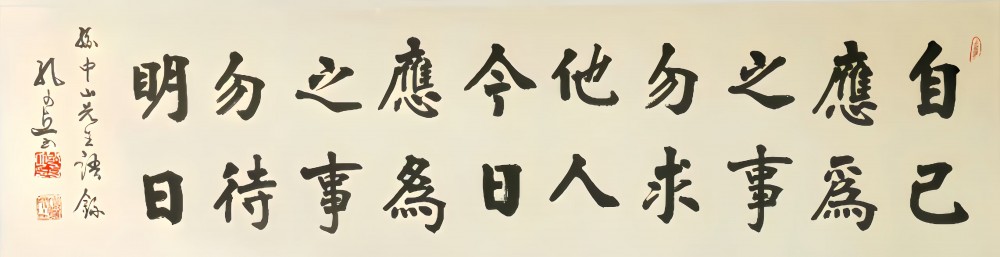 自己
應爲
之事
勿求
他人
今日
應為
之事
勿待
明日
孫中山先生語錄
孔